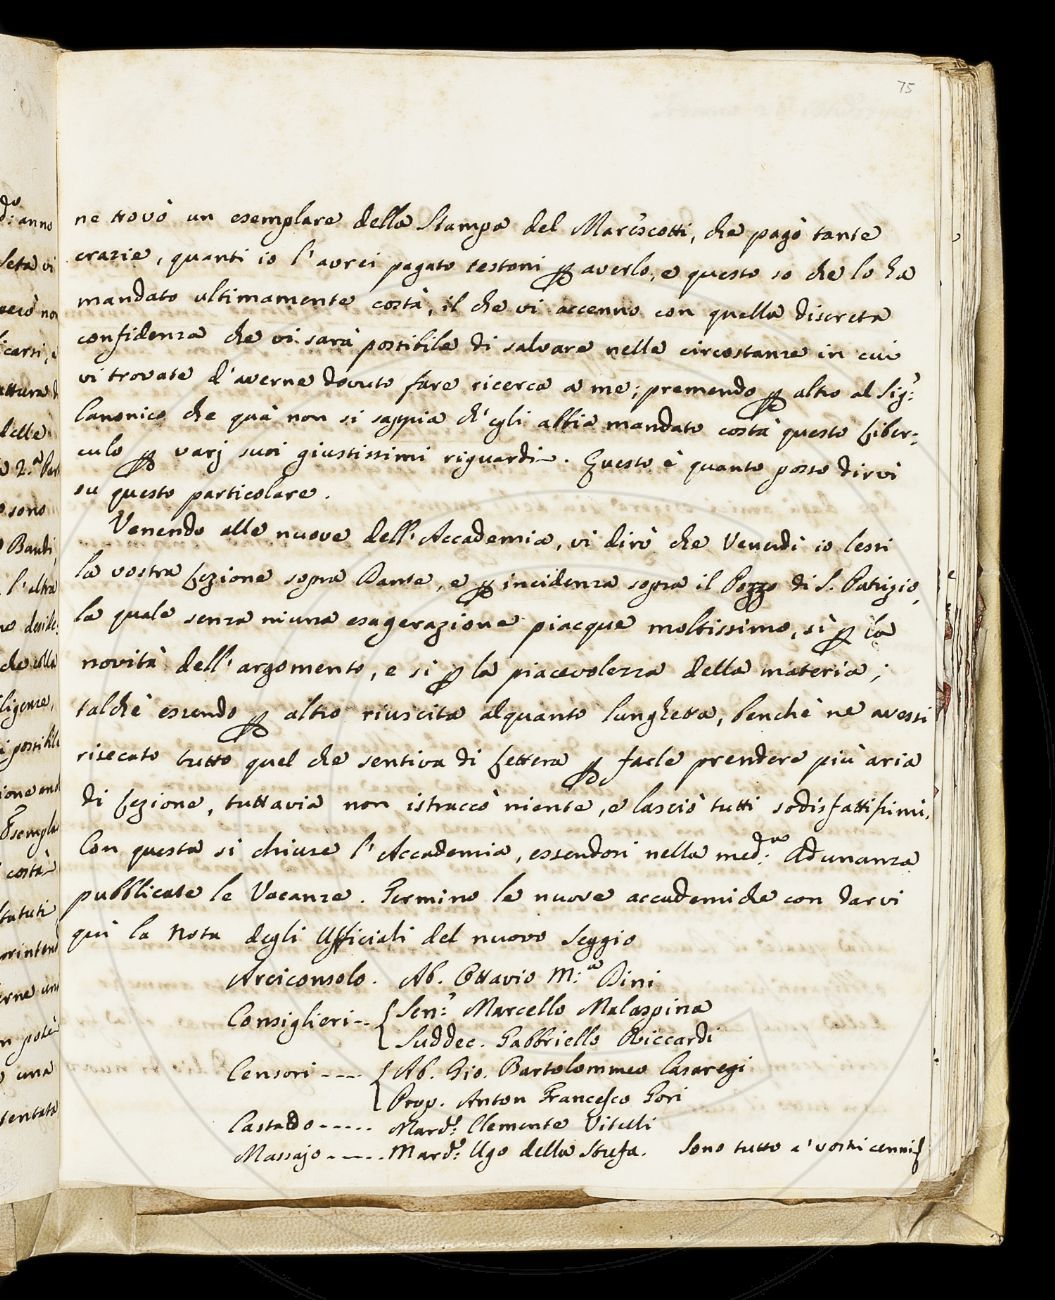 75
ne trovò un esemplare della Stampa del Marescotti, che pagò tante
crazie, quanti io l'avrei pagato testoni p averlo, e questo so che lo ha
mandato ultimamente costà, il che vi accenno con quella discreta
confidenza che vi sarà possibile di salvare nelle circostanze in cui
vi trovate d'averne dovuto fare ricerca a me; premendo p altro al Sig.r
Canonico che quà non si sappia ch'egli abbia mandato costà questo Liber-
culo p varj suoi giustissimi riguardi. Questo è quanto posso dirvi
su questo particolare.
Venendo alle nuove dell'Accademia, vi dirò che Venerdì io lessi
la vostra Lezione sopra Dante, e p incidenza sopra il Pozzo di S. Patrizio,
la quale senza niuna esagerazione piacque moltissimo, sì p la
novità dell'argomento, e si p la piacevolezza della materia;
talchè essendo p altro riuscita alquanto lunghetta, benchè ne avessi
risecato tutto quel che sentiva di Lettera p farle prendere più aria
di Lezione, tuttavia non istraccò niente, e lasciò tutti sodisfattissimi.
Con questa si chiuse l'Accademia, essendosi nella med.ma Adunanza
pubblicate le Vacanze. Termino le nuove accademiche con darvi
quì la Nota degli Ufficiali del nuovo Seggio
Arciconsolo. Ab. Ottavio M.a Dini
Consiglieri -- { Sen.r Marcello Malaspina
Suddec. Gabbriello Riccardi
Censori ---- { Ab. Gio. Bartolommeo Casaregi
Prop. Anton Francesco Gori
Castaldo ----- March.e Clemente Vitelli
Massajo ----- March.e Ugo della Stufa. Sono tutto a' vostri cenni
d.o anno